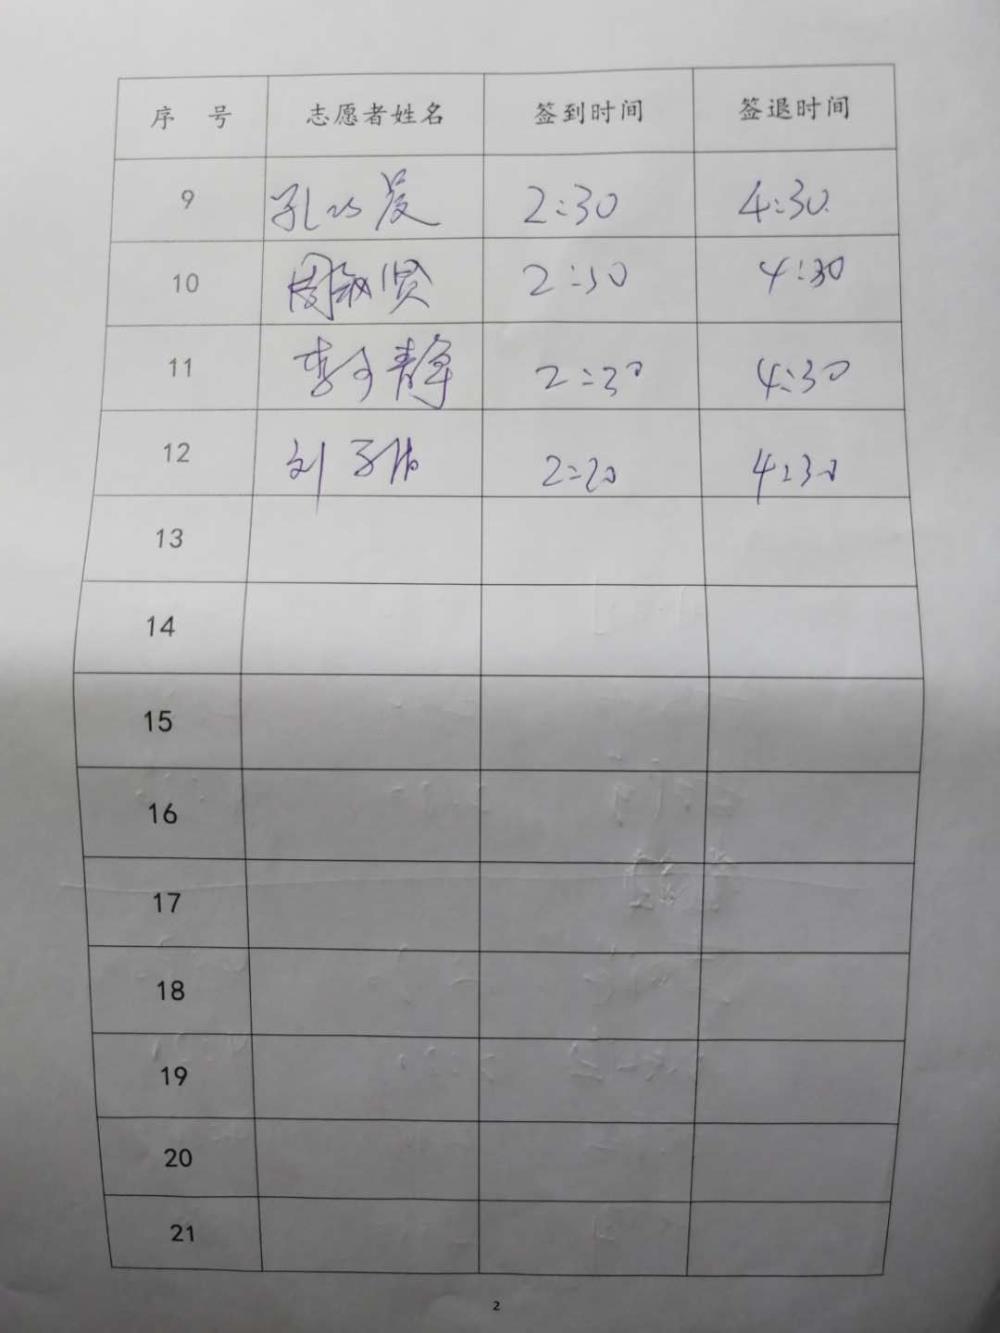 序 号 志愿者姓名 签到时间 签退时间
9 孔 2:30 4:30
10 周敏贤 2:30 4:30
11 李 静 2:30 4:30
12 刘子 2:20 4:30
13
14
15
16
17
18
19
20
21
2